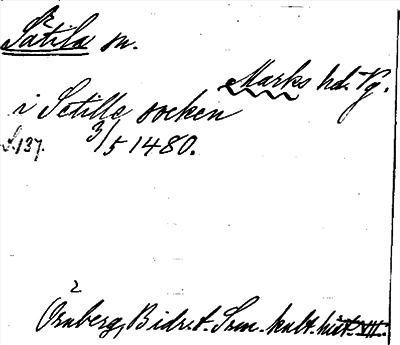 Sätila sn.
Marks hd. Vg.
i Setille socken
S.137. 3/5 1480.
Örnberg, Bidr. t. Srm. kult. hist. VII.